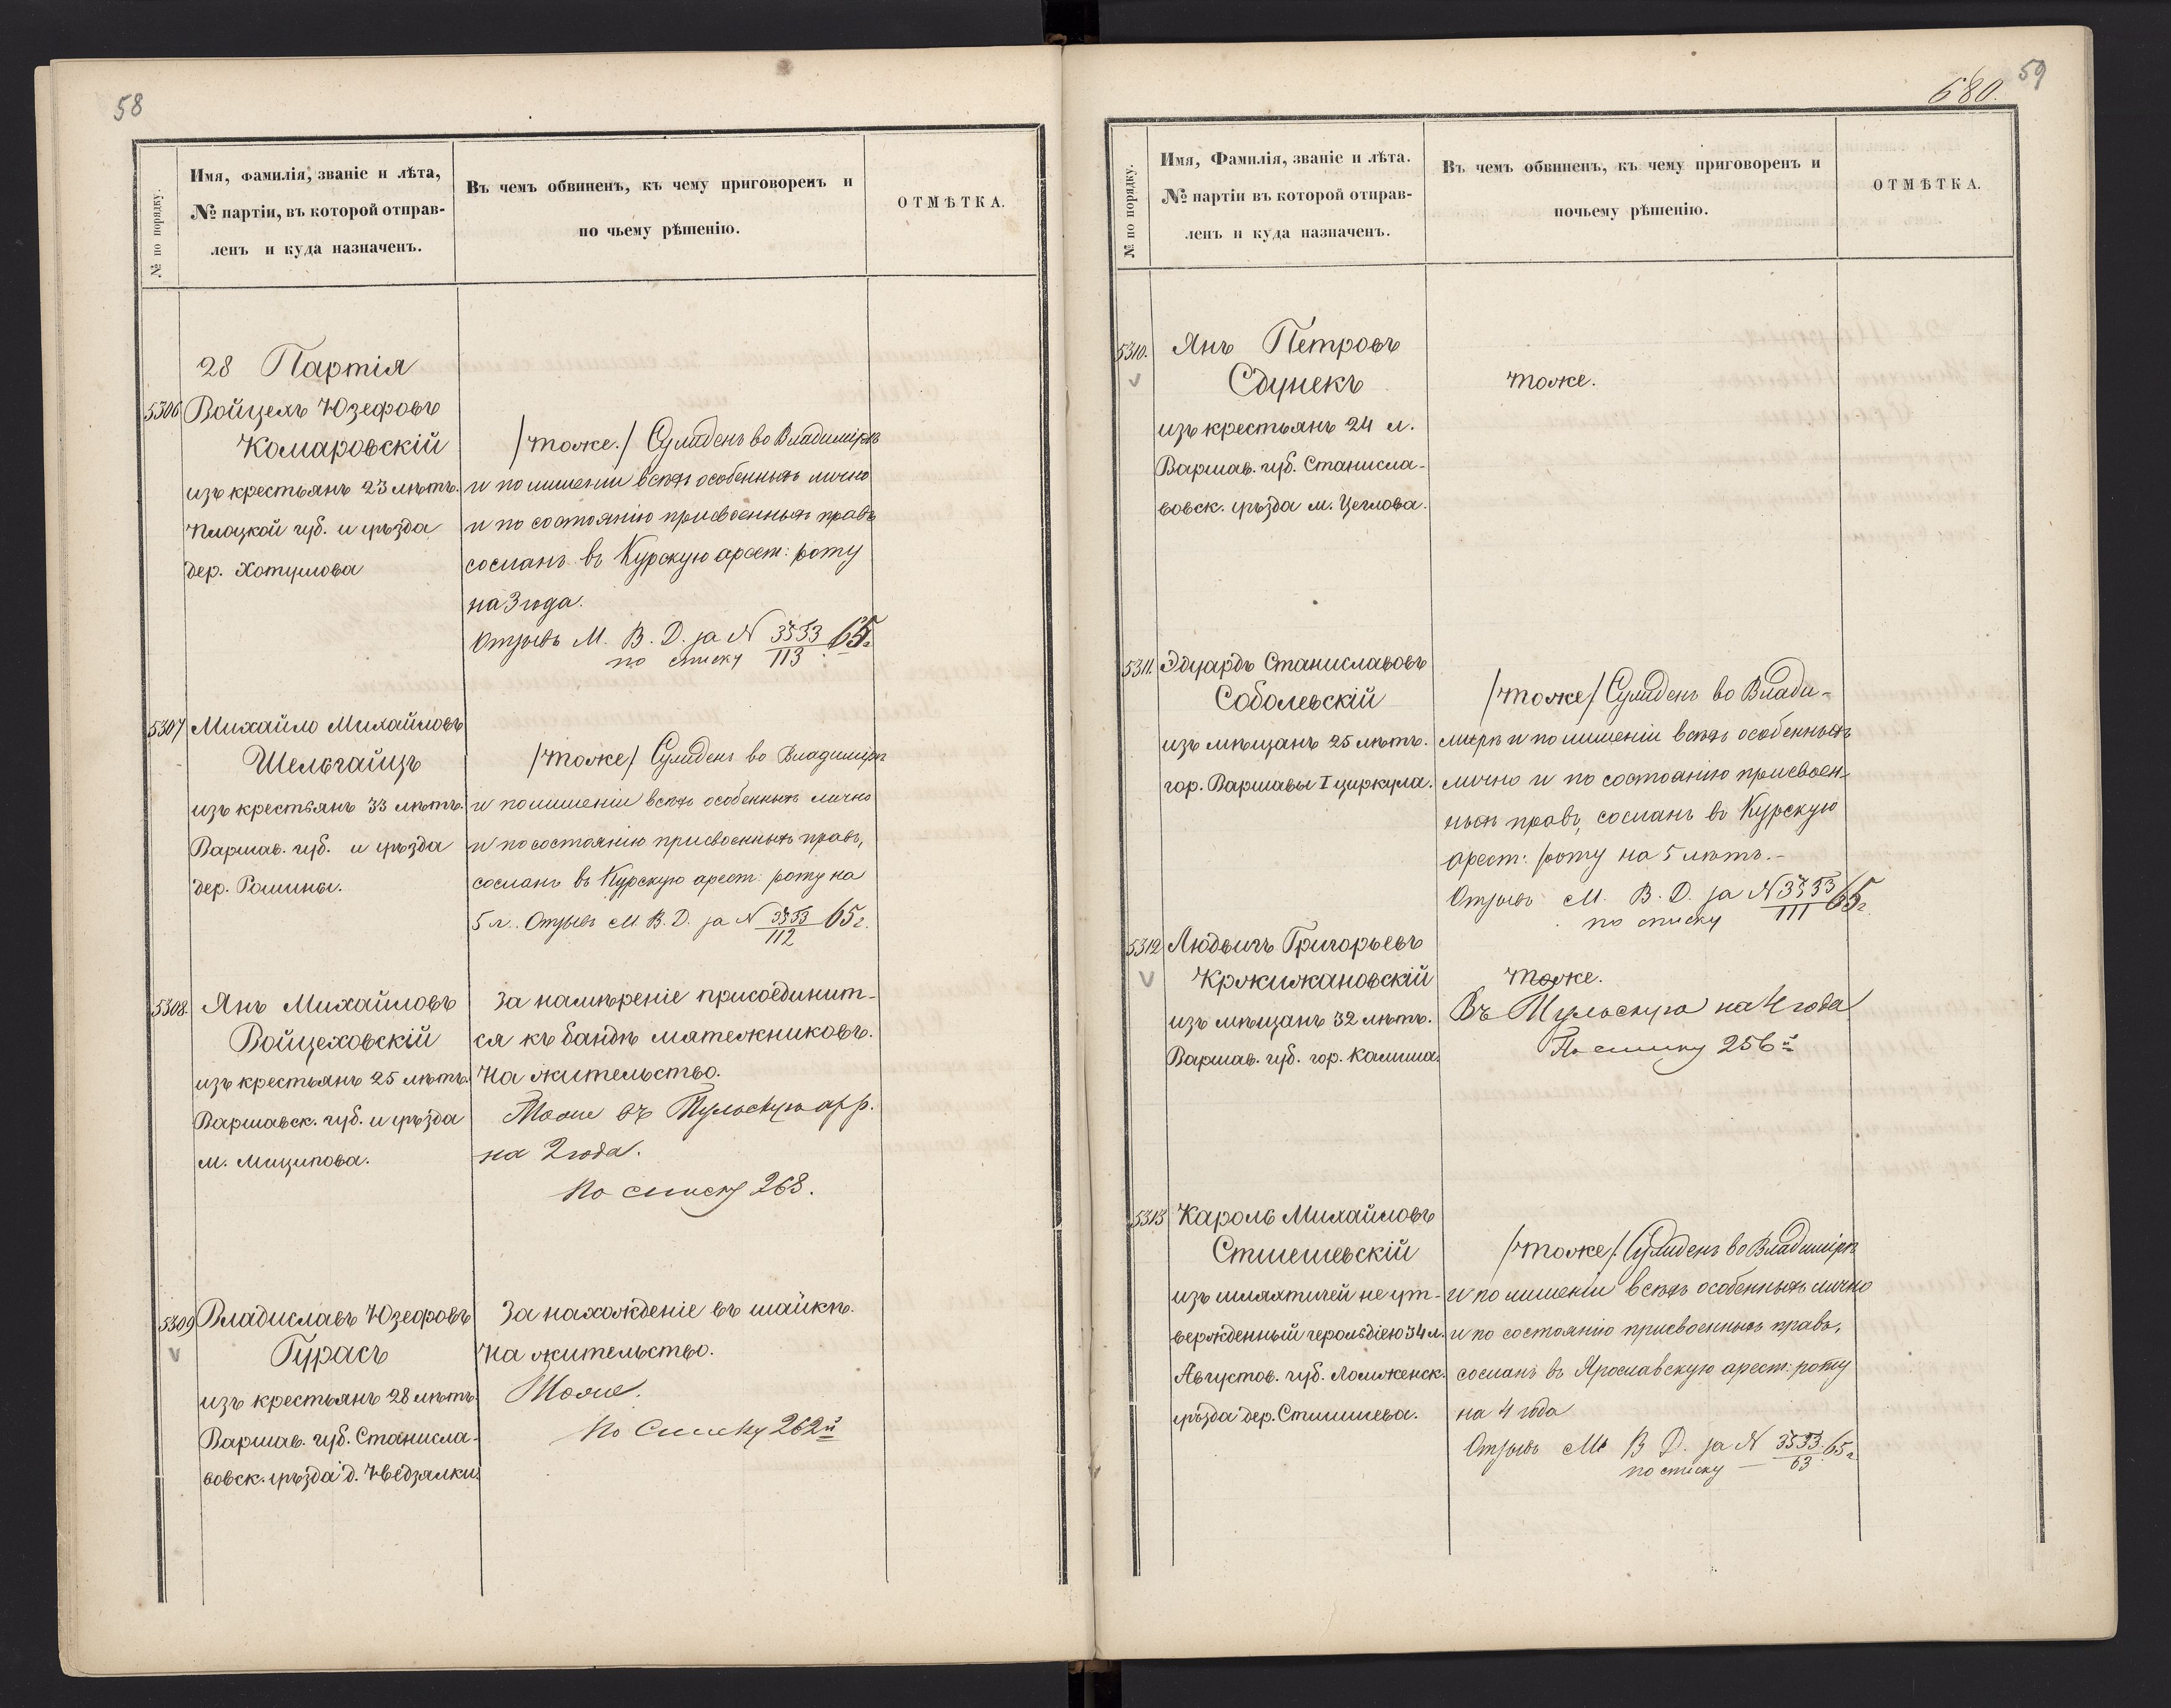 58
№ по порядку.
Имя, Фамилія, званіе и лѣта,
№ партіи, въ которой отправ-
ленъ и куда назначенъ.
Въ чемъ обвиненъ, къ чему приговоренъ и
по чьему рѣшенію.
ОТМѢТКА.
28 Партія
5306 Войцехъ Юзефовъ
Комаровскій
изъ крестьянъ 23 лѣтъ.
Плоцкой губ. и уѣзда
дер. Хотумова
/тоже./ Сужденъ во Владимірѣ
и по лишеніи всѣхъ особенныхъ лично
и по состоянію присвоенныхъ правъ
сосланъ въ Курскую арест: роту
на 3 года.
Отзывъ М. В. Д. за N 3533/113 65 г.
по списку
5307 Михайло Михайловъ
Шельгайцъ
изъ крестьянъ 33 лѣтъ.
Варшав. губ. и уѣзда
дер. Рошины.
/тоже/ Сужденъ во Владимірѣ
и по лишеніи всѣхъ особенныхъ лично
и по состоянію присвоенныхъ правъ,
сосланъ въ Курскую арест: роту на
5 л. Отзывъ М. В. Д. за N 3533/112 65 г.
5308. Янъ Михайловъ
Войцеховскій
изъ крестьянъ 25 лѣтъ.
Варшавск. губ. и уѣзда
м. Мщинова.
За намѣреніе присоединит-
ся къ бандѣ мятежниковъ.
На жительство.
Тоже въ Тульскую ар р.
на 2 года.
По списку 268.
5309 Владиславъ Юзефовъ
Гурасъ
изъ крестьянъ 28 лѣтъ.
Варшав. губ. Станисла-
вовск. уѣзда д. Нведзялки.
За нахожденіе въ шайкѣ.
На жительство.
Тоже.
По Списку 262й
59
680.
№ по порядку.
Имя, Фамилія, званіе и лѣта.
№ партіи въ которой отправ-
ленъ и куда назначенъ.
Въ чемъ обвиненъ, къ чему приговоренъ и
почьему рѣшенію.
ОТМѢТКА.
5310. Янъ Петровъ
Сдунекъ
изъ крестьянъ 24 л.
Варшав. губ. Станисла-
вовск. уѣзда м. Цеглова.
тоже.
5311. Эдуардъ Станиславовъ
Соболевскій
изъ мѣщанъ 25 лѣтъ.
гор. Варшавы I циркула.
/тоже/ Сужденъ во Влади-
мірѣ и по лишеніи всѣхъ особенныхъ
лично и по состоянію присвоен-
ныхъ правъ, сосланъ въ Курскую
арест: роту на 5 лѣтъ.-
Отзывъ М. В. Д. за N 3533/111 65 г.
по списку
5312 Людвигъ Григорьевъ
Кржижановскій
изъ мѣщанъ 32 лѣтъ.
Варшав. губ. гор. Калиша.
тоже.
Въ Тульскую на 4 года
По списку 256й
5313 Кароль Михайловъ
Стшешевскій
изъ шляхтичей не ут-
вержденный герольдіею 34 л.
Августов. губ. Ломженск.
уѣзда дер. Стшишева.
/тоже/. Сужденъ во Владимірѣ
и по лишеніи всѣхъ особенныхъ лично
и по состоянію присвоенныхъ правъ,
сосланъ въ Ярославскую арест: роту
на 4 года
Отзывъ М. В. Д. за N 3533/63 65 г.
по списку